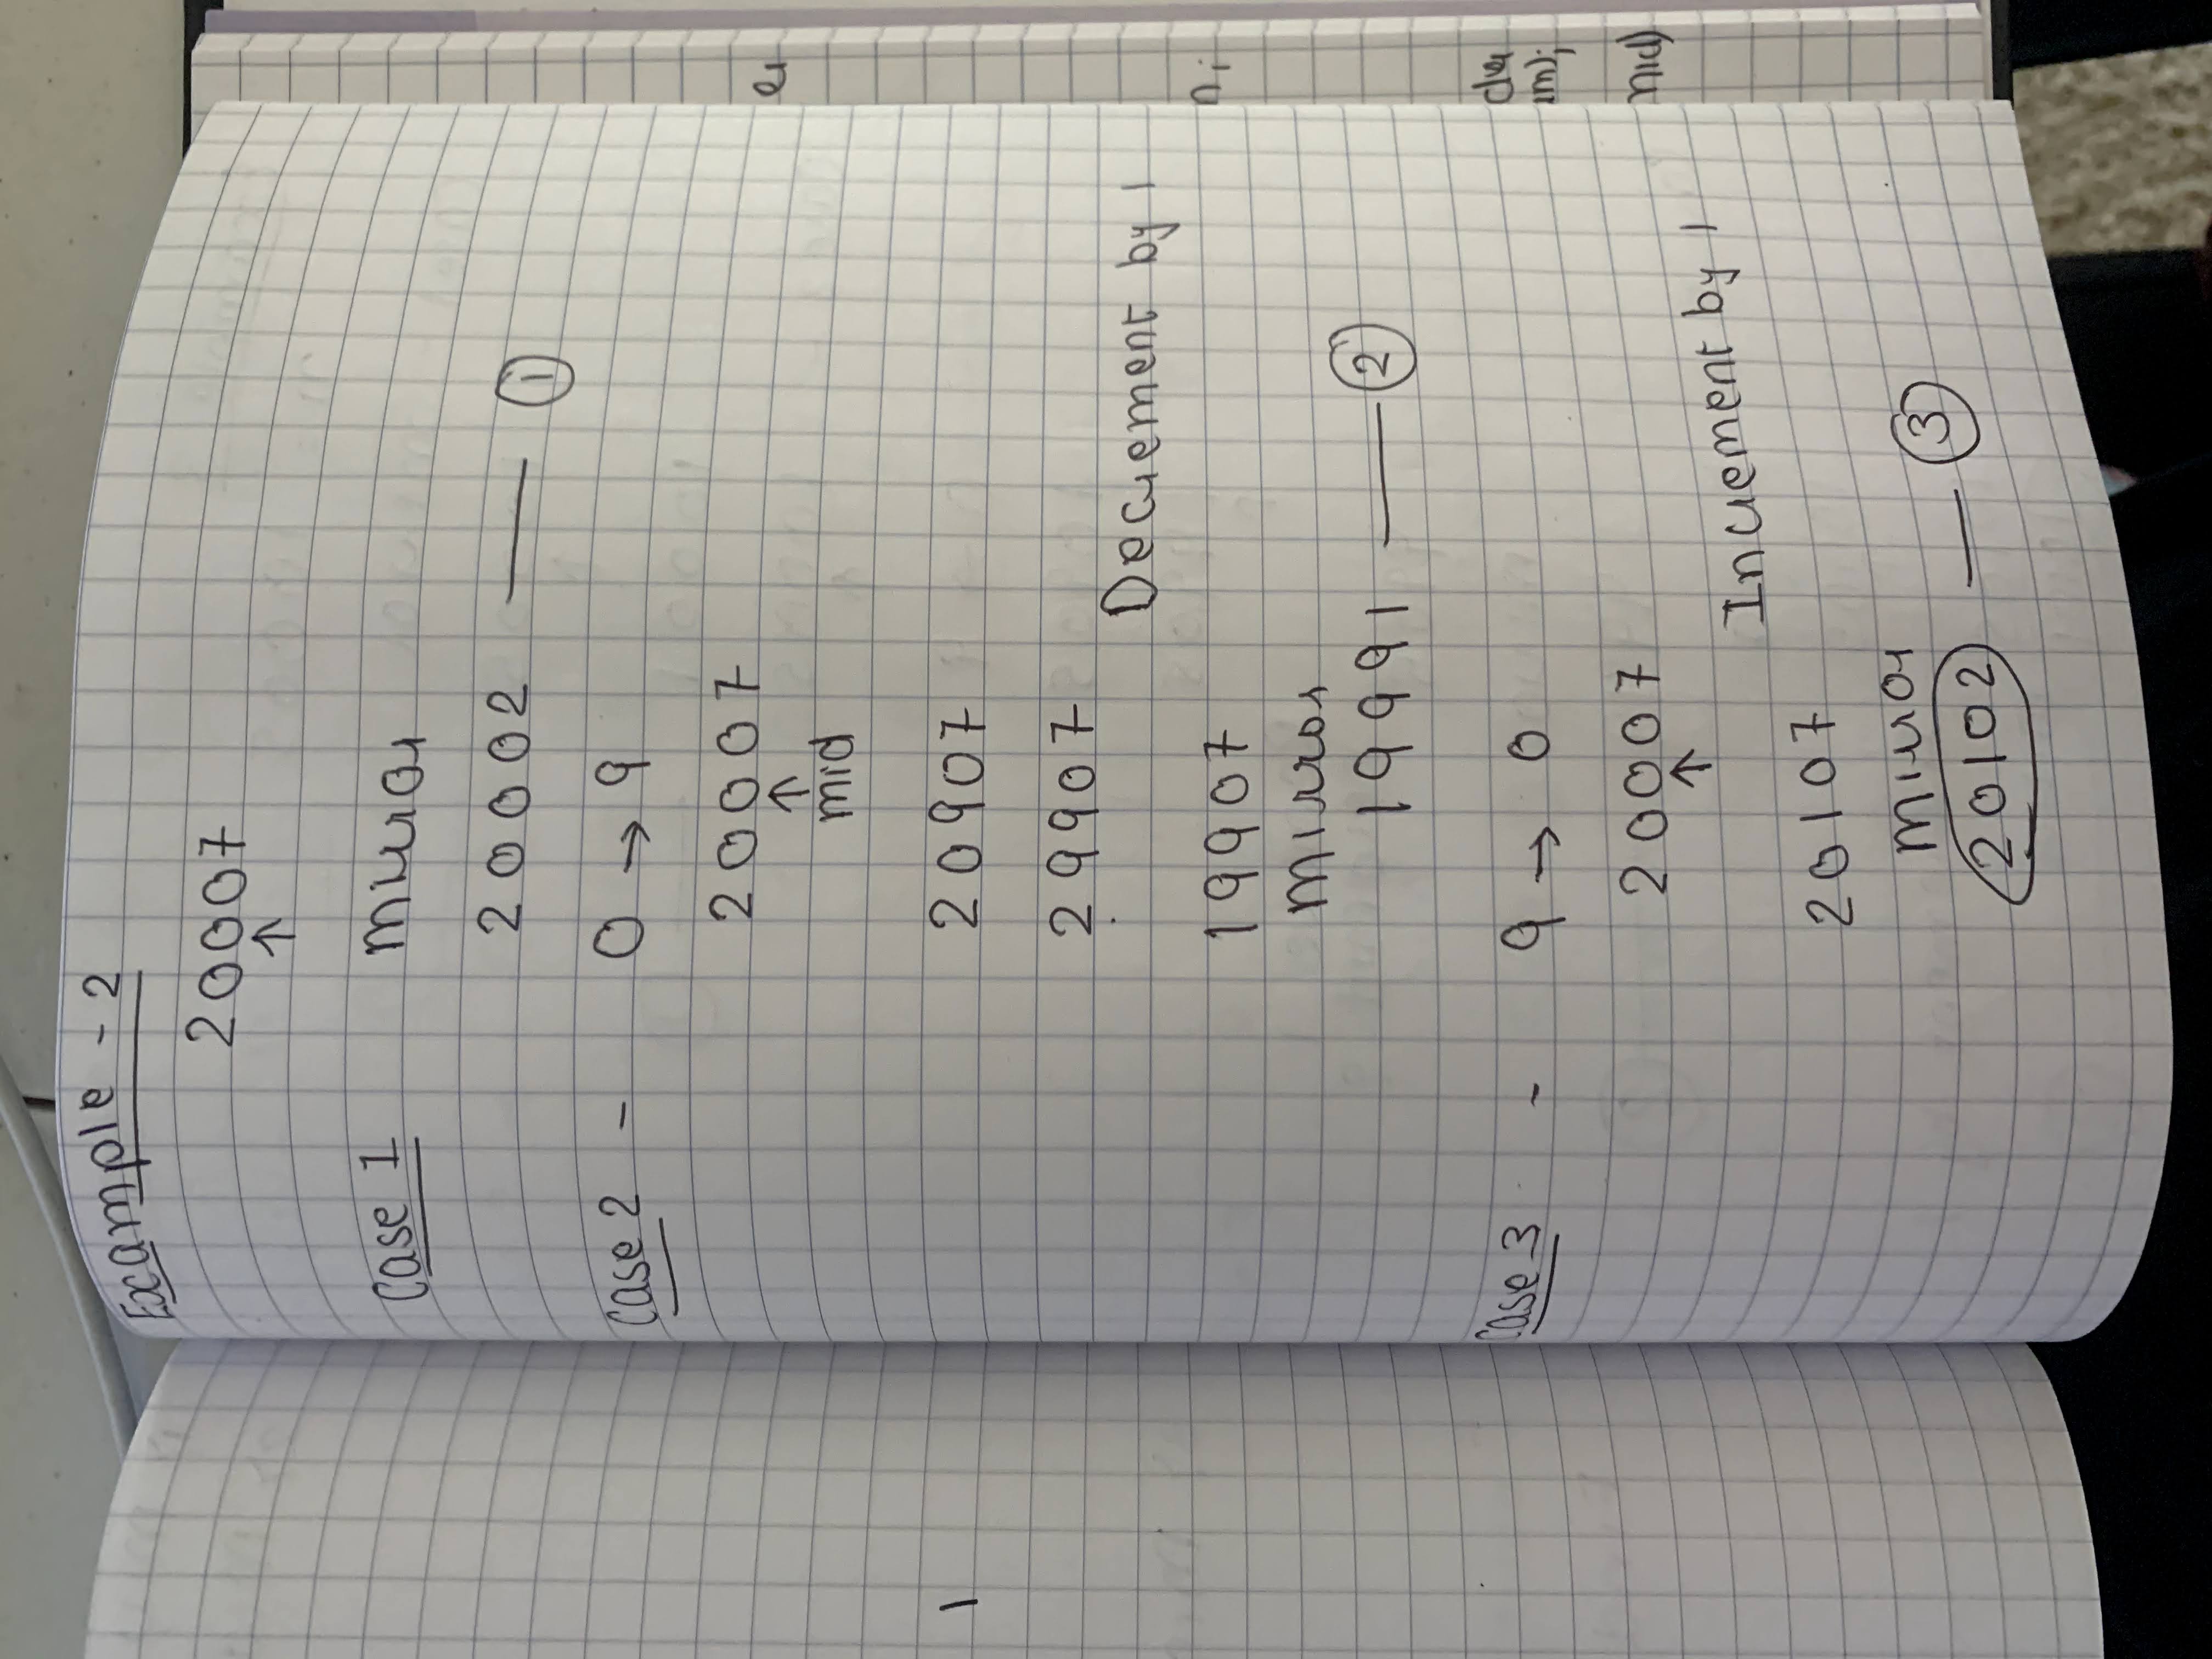 Example - 2
20007
↑
Case 1 Mirror
20002 — ①
Case 2 - 0 → 9
20007
↑
mid
20907
29907
Decrement by 1
19907
Mirror
19991 — ②
Case 3 - 9 → 0
20007
↑
Increment by 1
20107
Mirror
20102 — ③
1
er
n;
um);
mid)